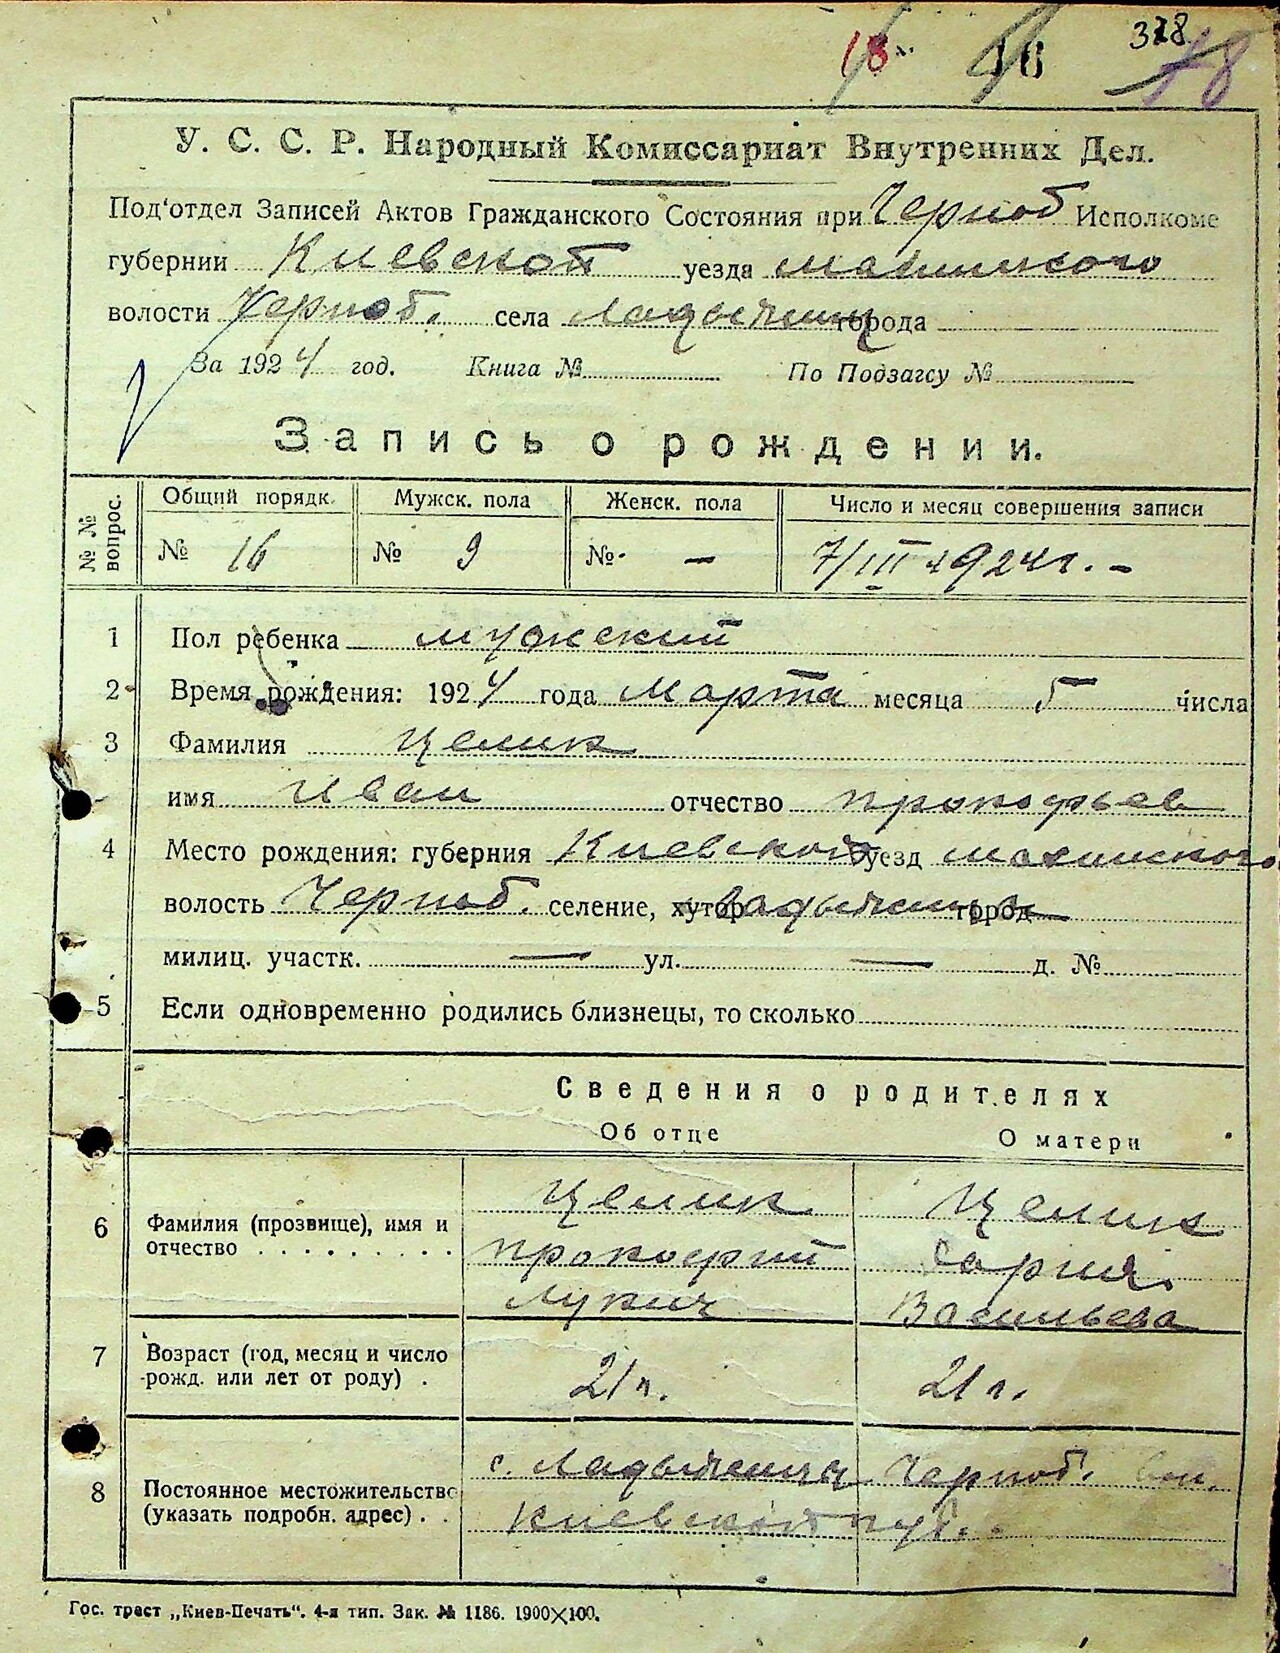 18
16
318
18
У. С. С. Р. Народный Комиссариат Внутренних Дел.
Под'отдел Записей Актов Гражданского Состояния при Черноб Исполкоме
губернии Киевской уезда
волости Черноб. села Ладыжичи города
За 1924 год. Книга № По Подзагсу №
Запись о рождении.
№ № вопрос.
Общий порядк. Мужск. пола Женск. пола Число и месяц совершения записи
№ 16 № 9 № - 7/III 1924 г. -
1 Пол ребенка мужский
2 Время рождения: 1924 года Марта месяца 5 числа
3 Фамилия Целик
имя Иван отчество Прокофьев
4 Место рождения: губерния Киевской уезд
волость Черноб. селение, хутор Ладыжичи город
милиц. участк. — ул. — д. №
5 Если одновременно родились близнецы, то сколько
Сведения о родителях
Об отце О матери
6 Фамилия (прозвище), имя и отчество Целик Прокофий Лукич Целик Васильева
7 Возраст (год, месяц и число рожд. или лет от роду) . 21 л. 21 л.
8 Постоянное местожительство (указать подробн. адрес) . . с. Ладыжичи Черноб. вол.
Киевской губ.
Гос. трест „Киев-Печать“. 4-я тип. Зак. № 1186. 1900×100.